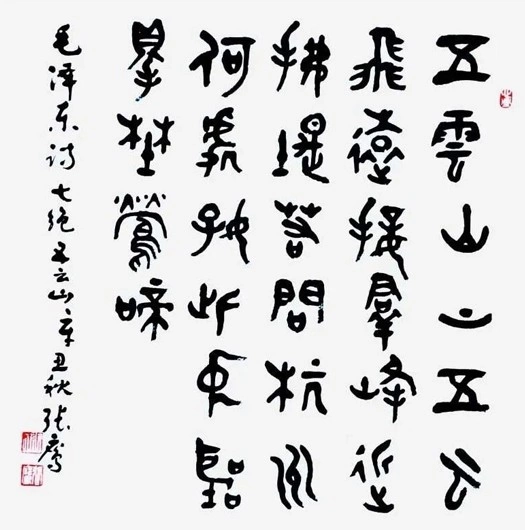 五雲山上五云
飛遠接羣峰近
拂堤若問杭州
何處好此中聽
得埜鶯啼
毛泽东诗七绝五云山辛丑秋张